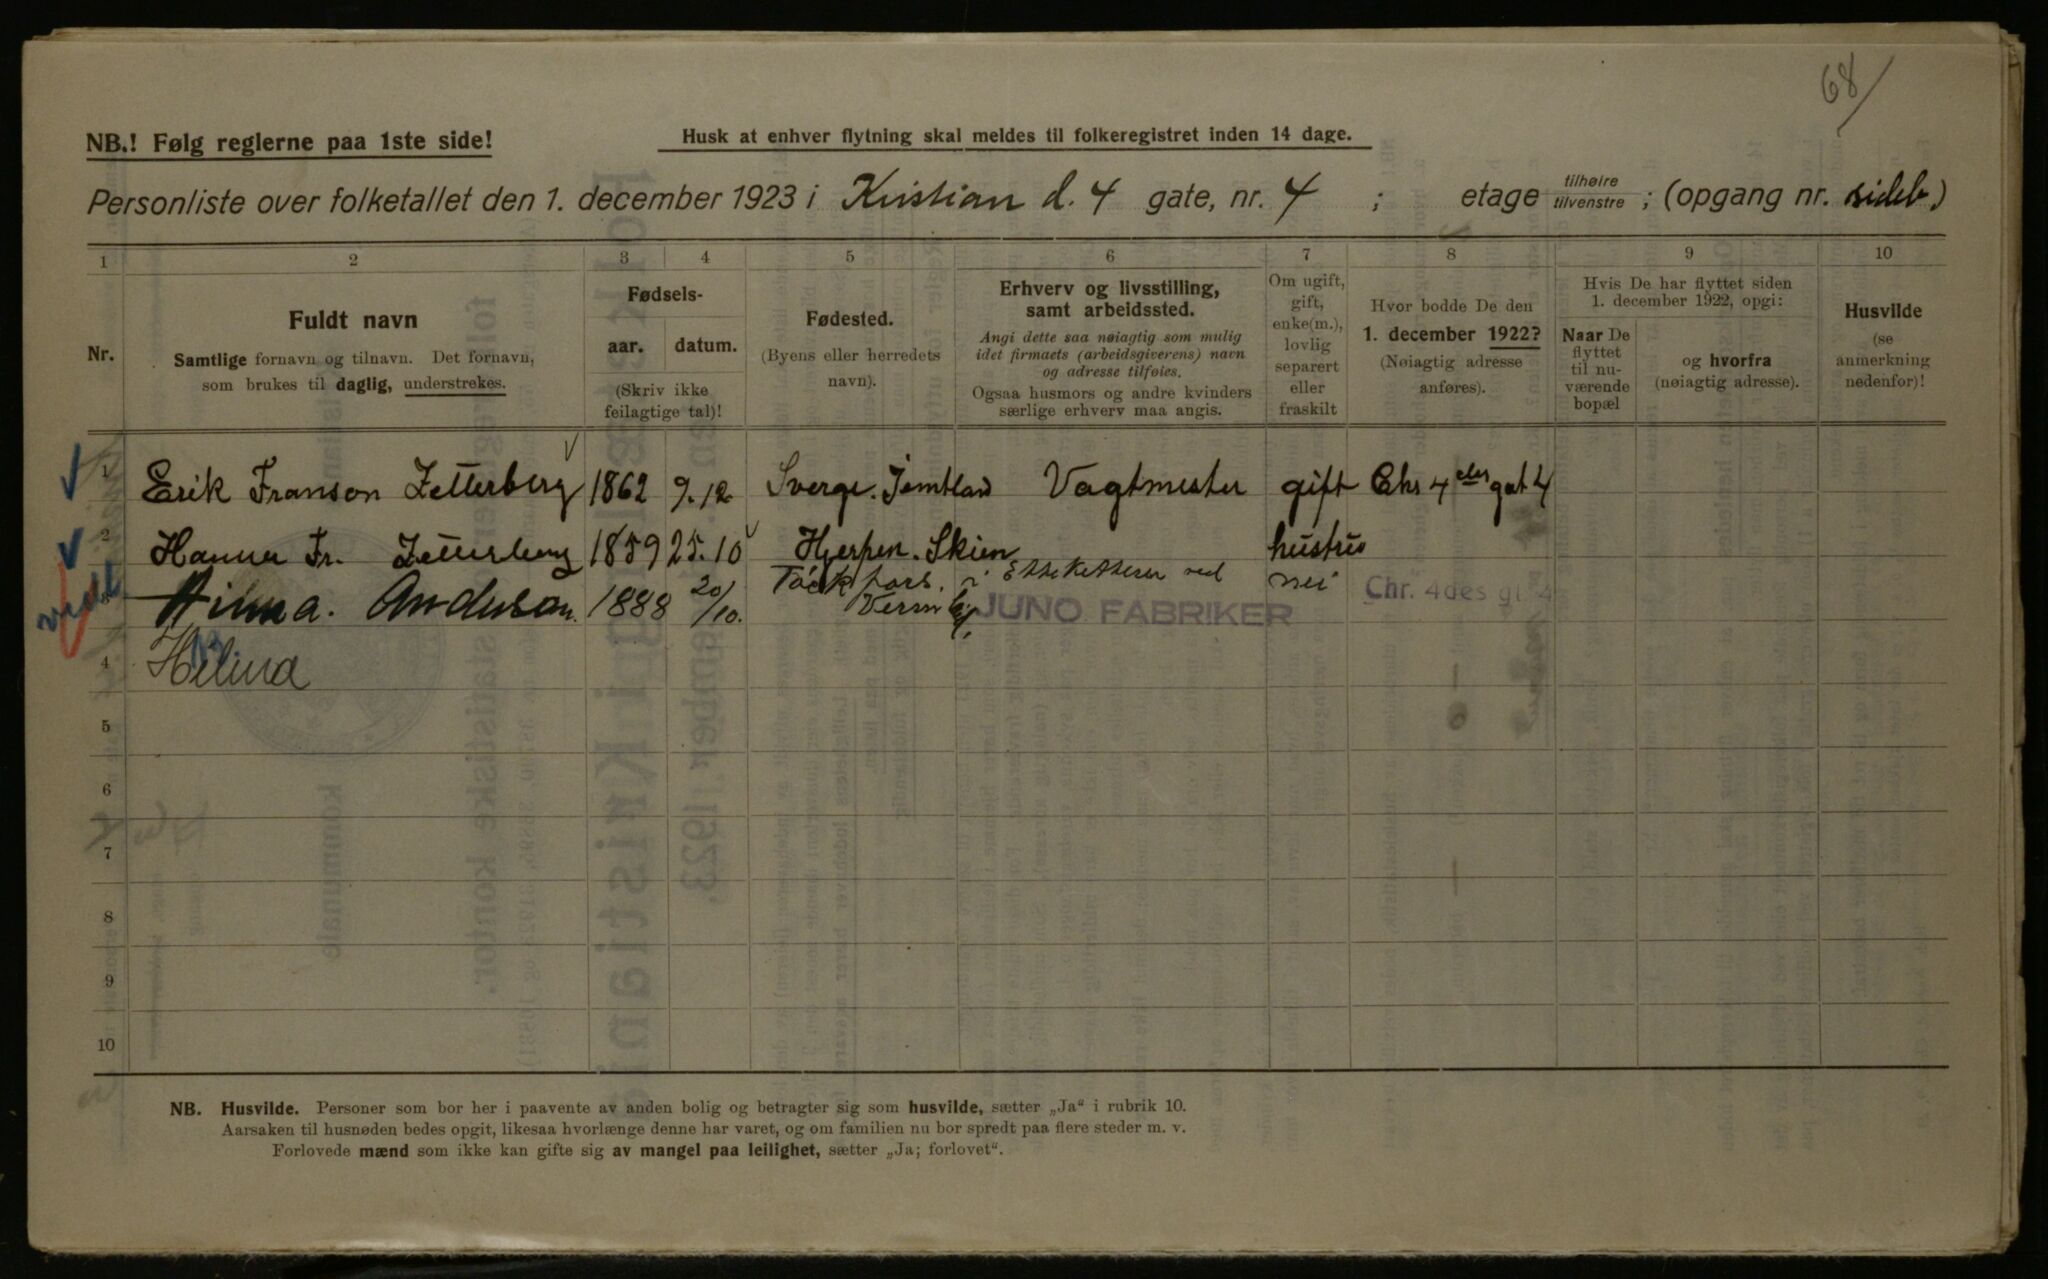 68/
NB.! Følg reglerne paa 1ste side!
Husk at enhver flytning skal meldes til folkeregistret inden 14 dage.
Personliste over folketallet den 1. december 1923 i Kristian d. 4 gate, nr. 4 ; etage tilhøire tilvenstre ; (opgang nr. sideb.)
1 2 3 4 5 6 7 8 9 10
Nr.
Fuldt navn
Samtlige fornavn og tilnavn. Det fornavn,
som brukes til daglig, understrekes.
Fødsels-
aar. datum.
(Skriv ikke
feilagtige tal)!
Fødested.
(Byens eller herredets
navn).
Erhverv og livsstilling,
samt arbeidssted.
Angi dette saa nøiagtig som mulig
idet firmaets (arbeidsgiverens) navn
og adresse tilføies.
Ogsaa husmors og andre kvinders
særlige erhverv maa angis.
Om ugift,
gift,
enke(m.),
lovlig
separert
eller
fraskilt
Hvor bodde De den
1. december 1922?
(Nøiagtig adresse
anføres).
Hvis De har flyttet siden
1. december 1922, opgi:
Naar De
flyttet
til nu-
værende
bopæl
og hvorfra
(nøiagtig adresse).
Husvilde
(se
anmerkning
nedenfor)!
1 Erik Franson Zetterberg 1862 9.12. Sverge. Jemtland Vagtmester gift Chr 4 des gat 4
2 Hanna Fr. Zetterberg 1859 25.10 Hjerpen. Skien hustru
Hilma. Anderson. 1888 20/10. Töckfors. i Etteketterer ved nei Chr. 4des gt. 4
JUNO FABRIKER
4 Helena
5
6
7
8
9
10
NB. Husvilde. Personer som bor her i paavente av anden bolig og betragter sig som husvilde, sætter „Ja“ i rubrik 10.
Aarsaken til husnøden bedes opgit, likesaa hvorlænge denne har varet, og om familien nu bor spredt paa flere steder m. v.
Forlovede mænd som ikke kan gifte sig av mangel paa leilighet, sætter „Ja; forlovet“.